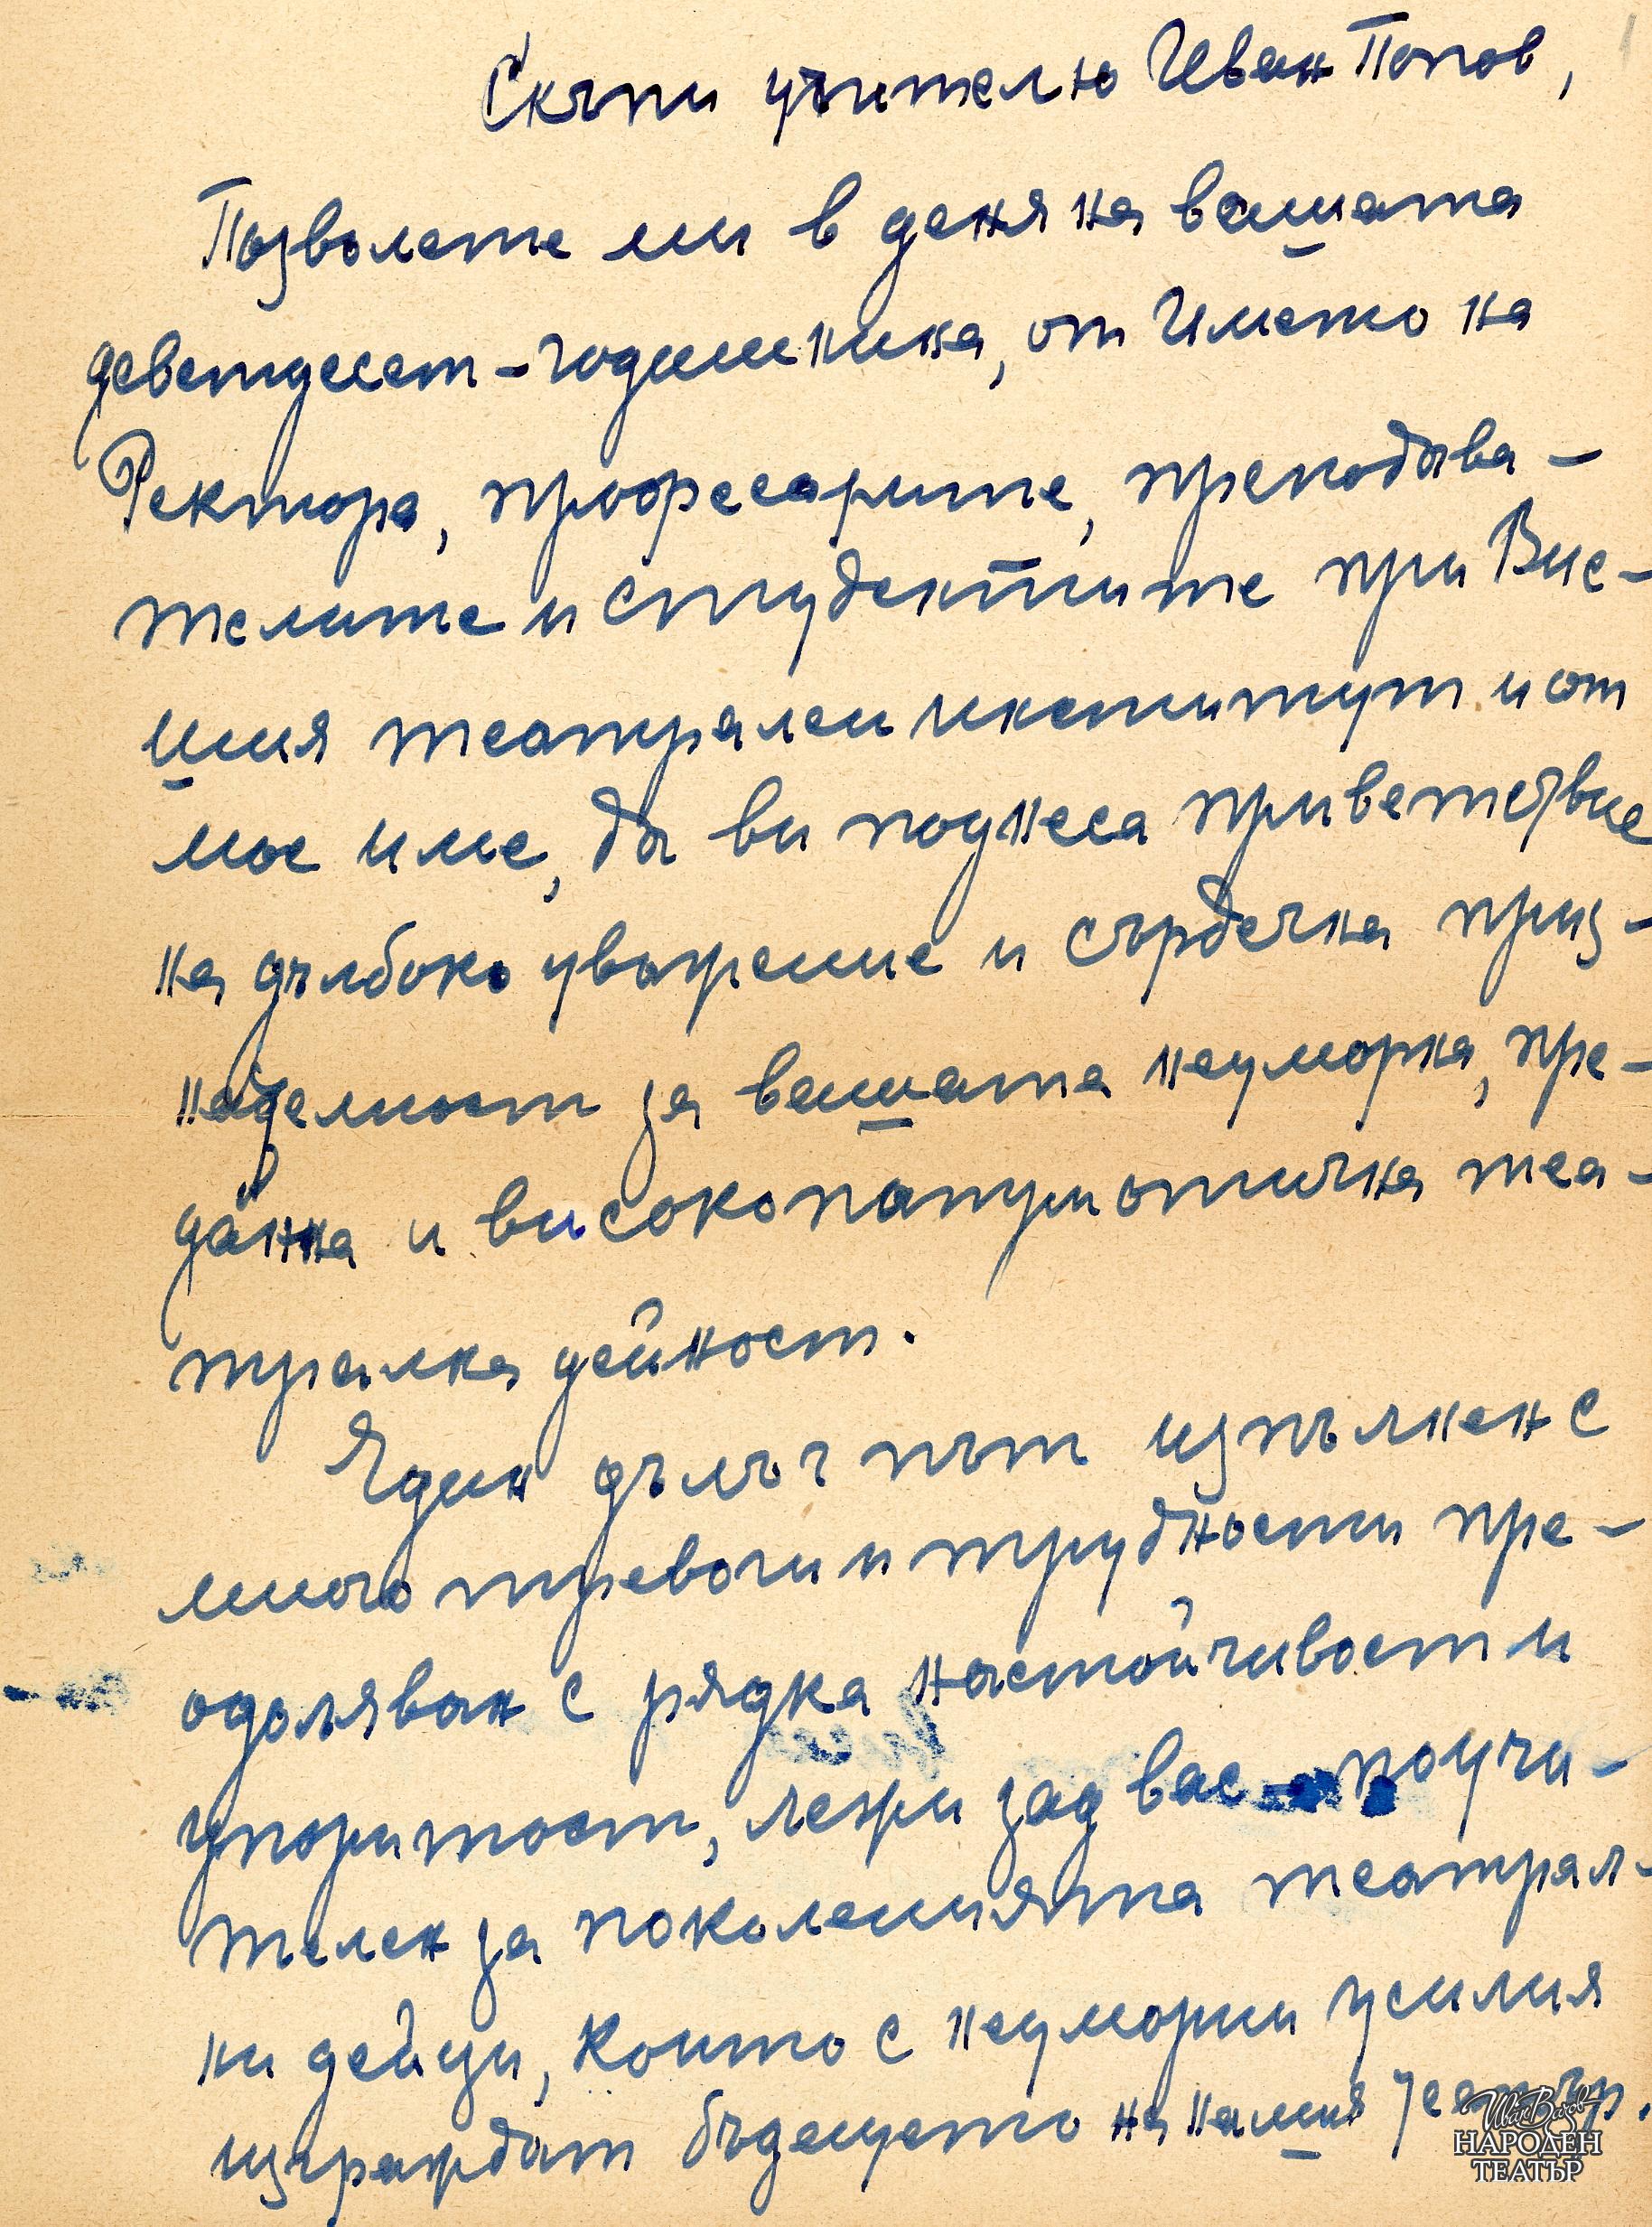 Скъпи учителю Иван Попов,
Позволете ми в деня на вашата
деветдесет-годишнина, от Името на
Ректора, професорите, преподава-
телите и студентите при Вис-
шия театрален институт и от
мое име, да ви поднеса приветствие
на дълбоко уважение и сърдечна приз-
нателност за вашата неуморна, пре-
данна и високопатриотична теа-
трална дейност.
Един дълъг път изпълнен с
много тревоги и трудности пре-
одоляван с рядка настойчивост и
упоритост, лежи зад вас - поучи-
телен за поколенията театрал-
ни дейци, които с неуморни усилия
изграждат бъдещето на нашия театър.
Иван Вазов
НАРОДЕН
ТЕАТЪР